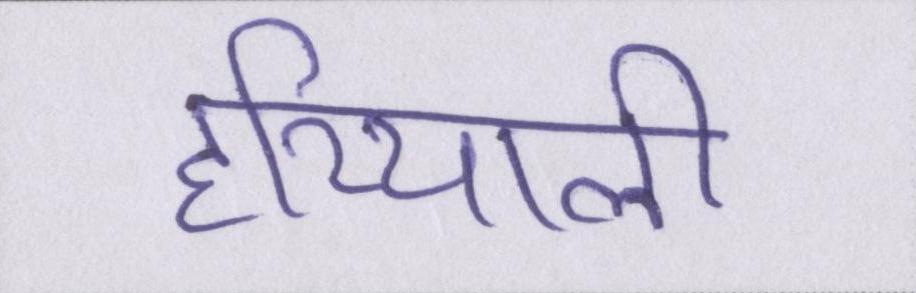 हरियाली